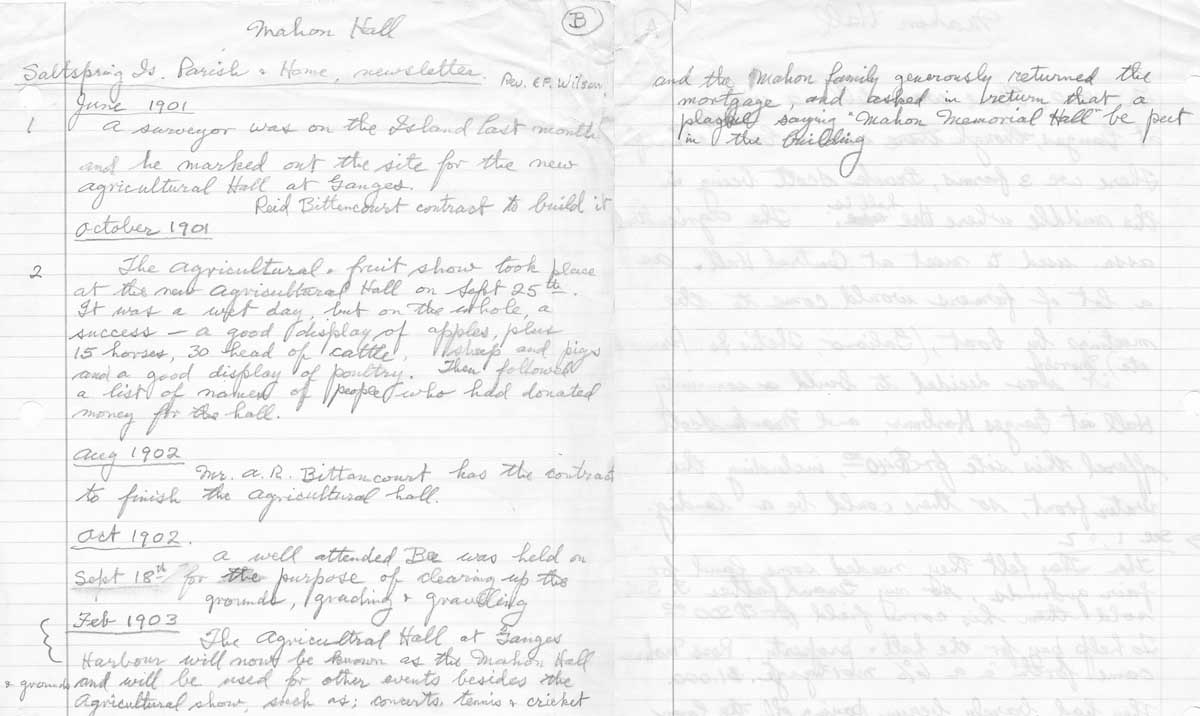 B
Mahon Hall
Saltspring Is. Parish & Home, newsletter. Rev. E.F. Wilson.
June 1901
1 A surveyor was on the Island last month
and he marked out the site for the new
agricultural Hall at Ganges.
Reid Bittencourt contract to build it
October 1901
2 The agricultural & fruit show took place
at the new Agricultural Hall on Sept 25th.
It was a wet day, but on the whole, a
success – a good display of apples, plus
15 horses, 30 head of cattle, sheep and pigs
and a good display of poultry. Then followed
a list of names of people who had donated
money for the hall.
Aug 1902
Mr. A.R. Bittancourt has the contract
to finish the agricultural hall.
Oct 1902.
a well attended Bee was held on
Sept 18th for the purpose of clearing up the
grounds, grading & gravelling
Feb 1903
The Agricultral Hall at Ganges
Harbour will now be known as the Mahon Hall
& grounds and will be used for other events besides the
Agricultural show, such as; concerts, tennis & cricket
and the Mahon family generously returned the
mortgage, and asked in return that a
saying "Mahon Memorial Hall" be put
in the building